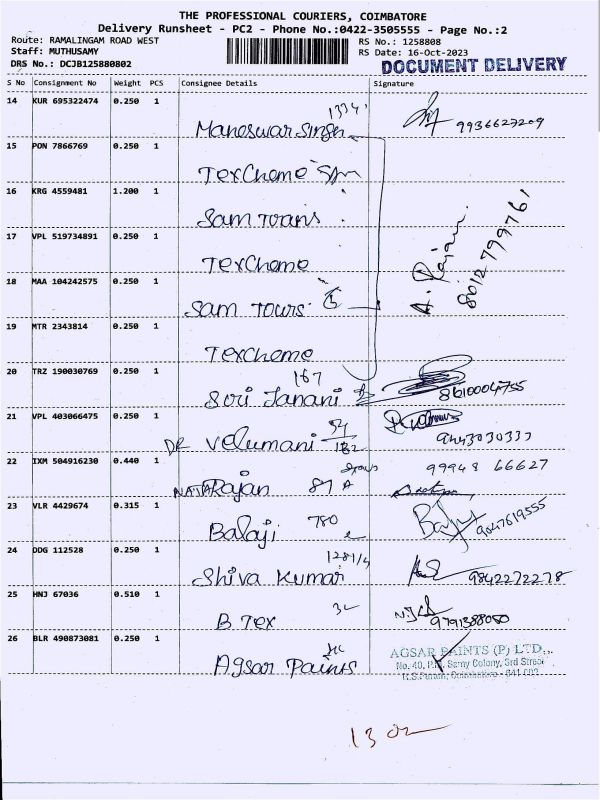 THE PROFESSIONAL COURIERS, COIMBATORE
Delivery Runsheet - PC2 - Phone No.:0422-3505555 - Page No.:2
Route: RAMALINGAM ROAD WEST RS No.: 1258808
Staff: MUTHUSAMY RS Date: 16-Oct-2023
DRS No.: DCJB125880802 DOCUMENT DELIVERY
S No Consignment No Weight PCS Consignee Details Signature
14 KUR 695322474 0.250 1
1334
Maneswar Singh 9936627209
15 PON 7866769 0.250 1
TexCheme
16 KRG 4559481 1.200 1
Sam Toans
17 VPL 519734891 0.250 1
TexCheme
A. Rajani
8012799761
18 MAA 104242575 0.250 1
Sam Tours
19 MTR 2343814 0.250 1
TexCheme
20 TRZ 190030769 0.250 1
167
Sori Janani 8610004755
21 VPL 403066475 0.250 1
DR Velumani 182 9443030333
22 IXM 504916230 0.440 1
99948 66627
NATARajan 87 A
23 VLR 4429674 0.315 1
780
Balaji 9047619555
24 DDG 112528 0.250 1
1281/4
Shiva Kumar 9842272278
25 HNJ 67036 0.510 1
B Tex 9791388050
26 BLR 490873081 0.250 1
Agsar Paints
AGSAR PAINTS (P) LTD.,
No. 40, P.M. Samy Colony, 3rd Street
R.S.Puram, Coimbatore - 641 002
13